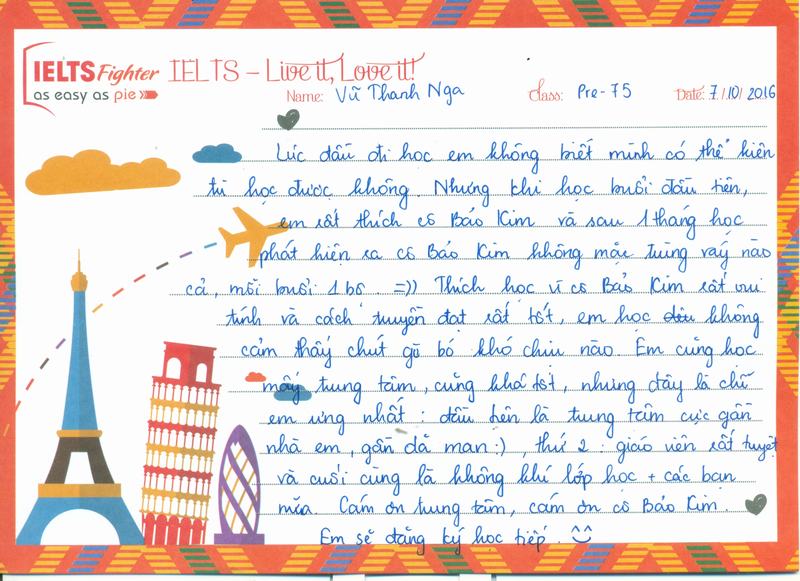 IELTS Fighter IELTS – Live it, Love it!
as easy as pie
Name: Vũ Thanh Nga Class: Pre-75 Date: 7/10/2016
Lúc đầu đi học em không biết mình có thể kiên
trì học được không. Nhưng khi học buổi đầu tiên,
em rất thích cô Bảo Kim và sau 1 tháng học
phát hiện ra cô Bảo Kim không mặc trùng váy nào
cả, mỗi buổi 1 bộ. =)) Thích học vì cô Bảo Kim rất vui
tính và cách truyền đạt rất tốt, em học không
cảm thấy chút gò bó khó chịu nào. Em cũng học
mấy trung tâm, cũng khá tốt, nhưng đây là chỗ
em ưng nhất: đầu tiên là trung tâm cực gần
nhà em, gần dã man :), thứ 2: giáo viên rất tuyệt
và cuối cùng là không khí lớp học + các bạn
nữa. Cám ơn trung tâm, cám ơn cô Bảo Kim.
Em sẽ đăng ký học tiếp. ^^